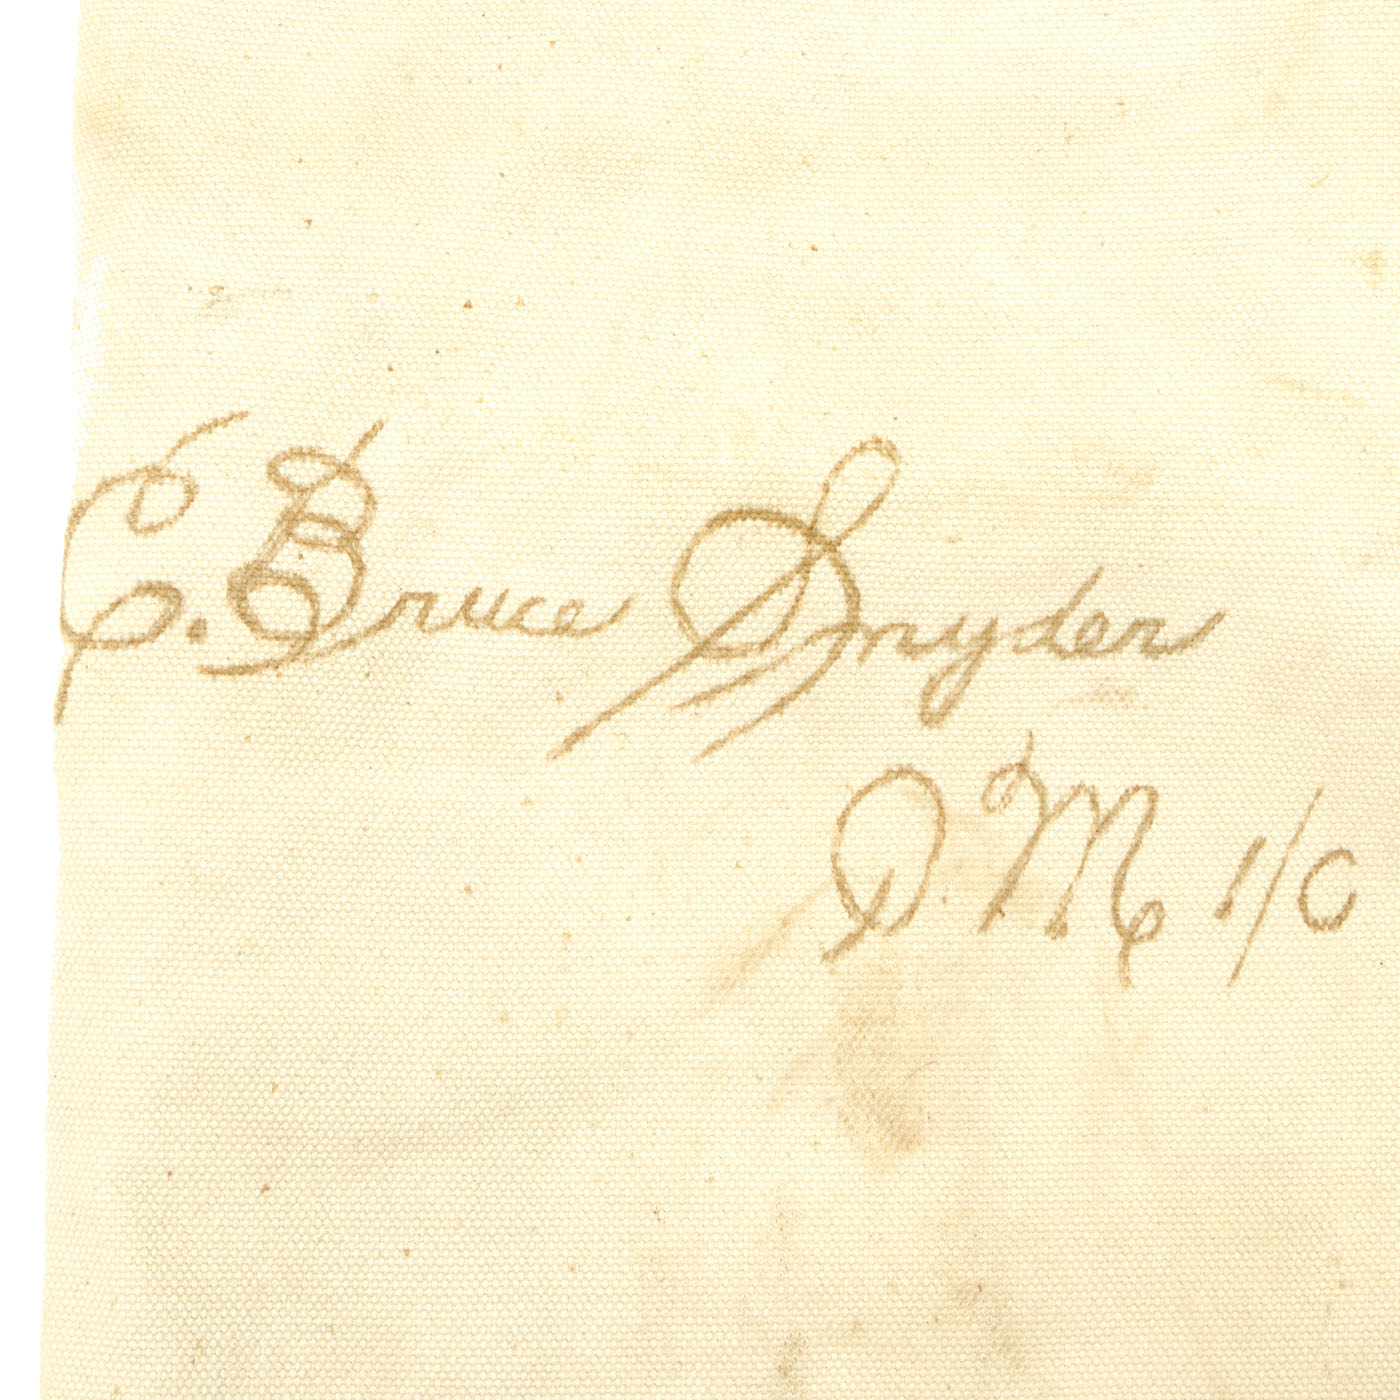 E. Bruce Snyder
QM 1/C